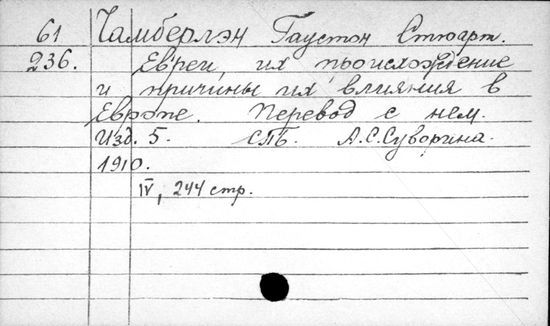 61 Чамберлэн Гаустон Стюарт.
236. Евреи, их происхождение
и причины их влияния в
Европе. Перевод с нем.
Изд. 5. СПБ. А.С.Суворина.
1910.
IV, 244 стр.